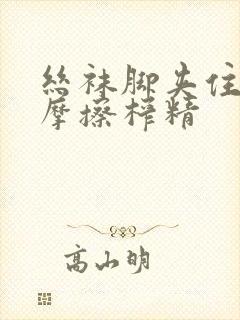 丝袜脚夹住
摩擦榨精
高山明